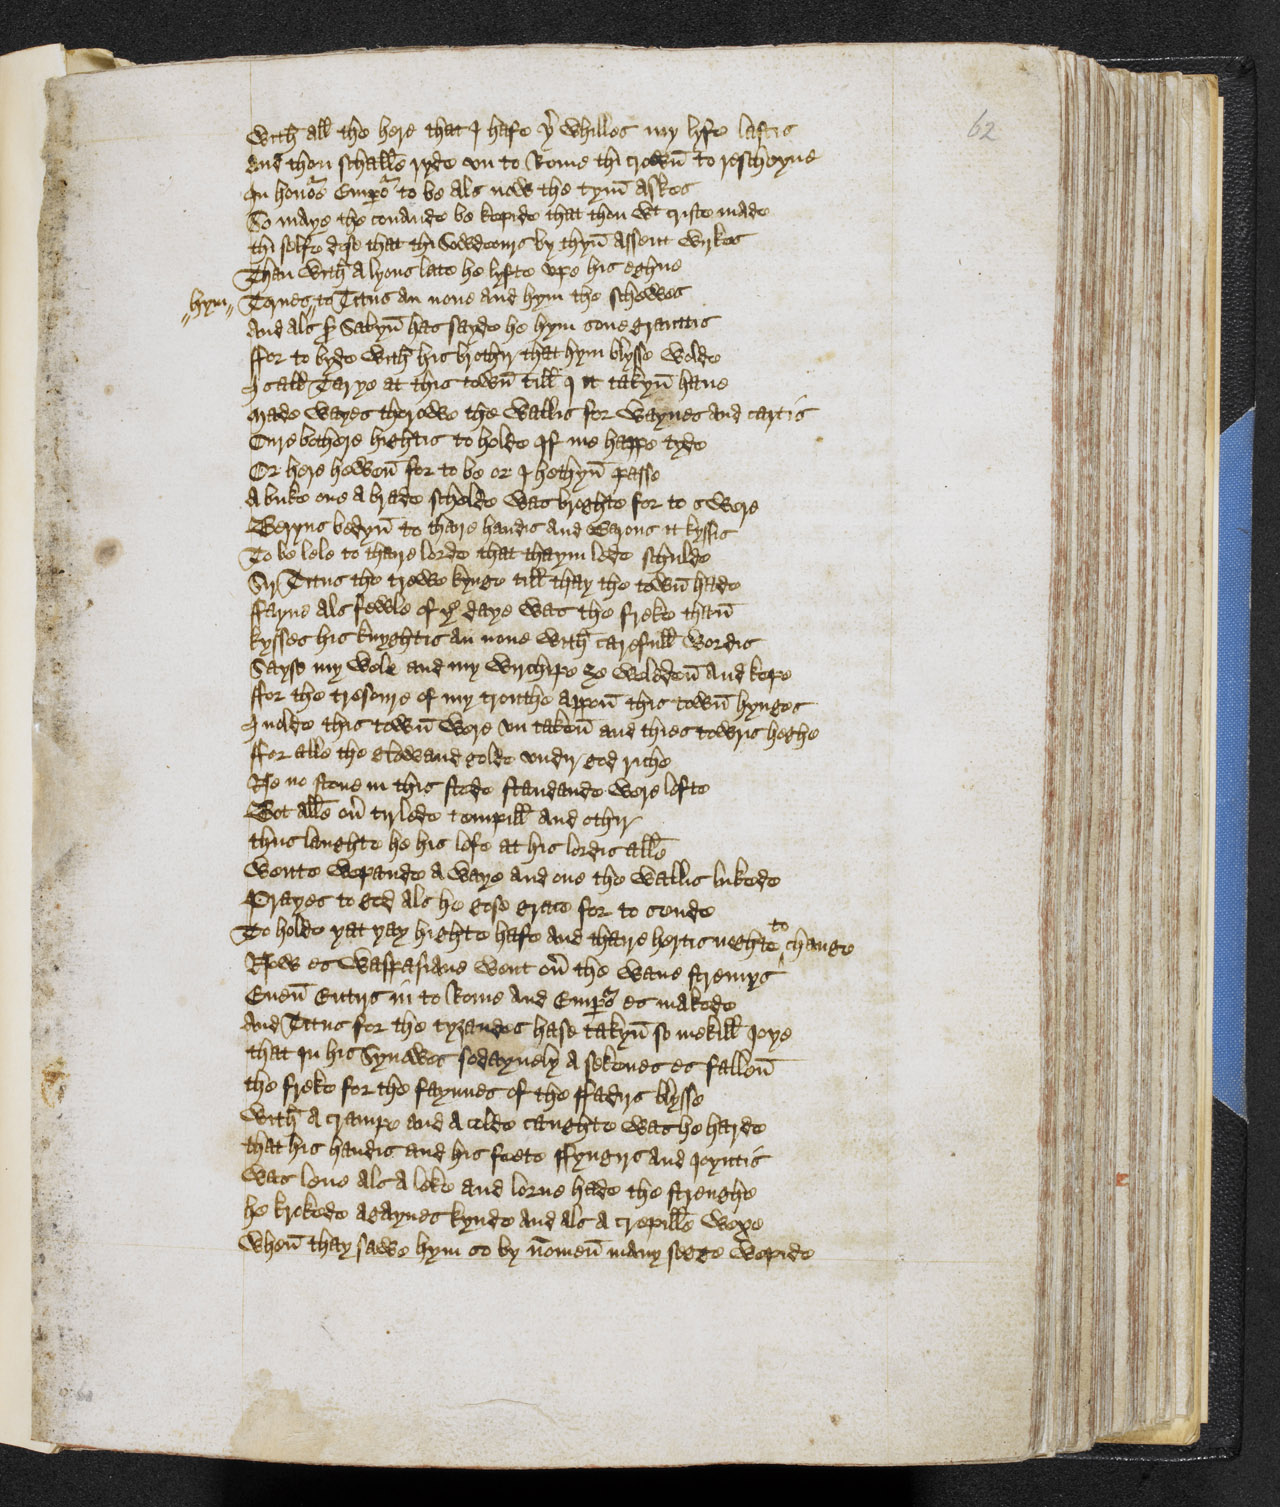 62
With all the here that I hafe yͤ whilles my lyfe lastis
And thou schalle ryde vn to Rome thi crown̄ to rescheyue
In honor Emꝑor to be als now the tym̄ askes
So maye the couande be kepide that thou wt criste made
thi selfe dese that thi Sowdeours by thyn̄ assent wirkes
Than with a lyons late he lyfte vpe his eghne
hym
Tornes to Titus an none and hym the schewes
And als sr Sabyn̄ has sayde he hym sone grauntis
ffor to byde with his brothir that hym blysse wolde
I sall Tarye at this town̄ till I it takyn̄ haue
Made wayes thorowe the wallis for waynes and cartis
Oure bothere hightis to holde If me happe tyde
Or here hewen̄ for to be or I hethyn̄ passe
A buke one a brade schelde was broghte for to swere
Beryns bedyn̄ to thare handis and barons it kyssis
To be lele to thaire lorde that thaym lede schulde
Sir Titus the trewe kynge till thay the town̄ hade
ffayne als fewle of yͤ daye was the freke than̄
kysses his knyghtis an none with carefull wordis
Sayse my wele and my wirchipe ȝe welden̄ and kepe
ffor the tresoure of my trouthe appon̄ this town̄ hynges
I nolde this town̄ were vn taken̄ and thies towris heghe
ffor alle the glowand golde vndir god riche
Ne no stone in this stede standande were lefte
Bot alle oủ tirlede tempill and othir
thus laughte he his lefe at his lordis alle
Wente wepande a waye and one the wallis lukede
Prayes to god als he gose grace for to sende
To holde yat yay highte hafe and thaire hertis neghte to change
Now es Waspasiane went oủ the wane stremys
Euen̄ Entirs in to Rome and Emꝑor es makede
And Titus for the tyzandes hase takyn̄ so mekill Ioye
that In his Synowes sodaynely a sekenes es fallen̄
the freke for the faynnes of the ffadirs blysse
With a crampe and a colde caughte was he harde
that his handis and his feete ffyngirs and Ioyntis
Was lene als a leke and lorne hade the strenghe
he krokede agaynes kynde and als a crepille wexe
When̄ thay sawe hym so by nomen̄ many segge wepide